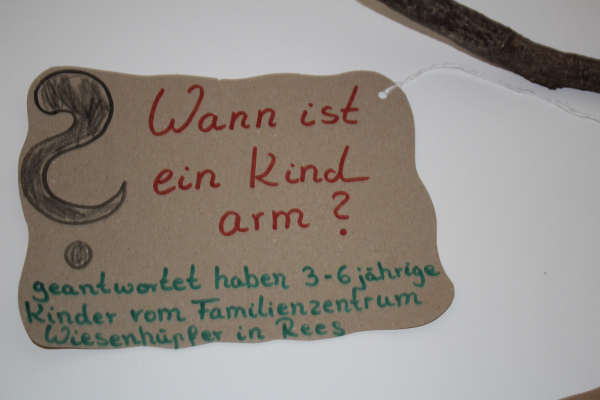 Wann ist
ein Kind
arm ?
geantwortet haben 3-6 jährige
Kinder vom Familienzentrum
Wiesenhüpfer in Rees